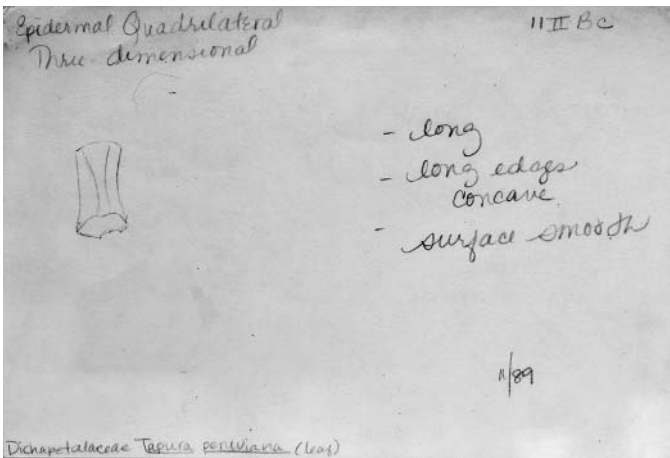 Epidermal Quadrilateral
Three-dimensional
11 II Bc
- long
- long edges
concave
- surface smooth
11/89
Dichapetalaceae Tapura peruviana (leaf)